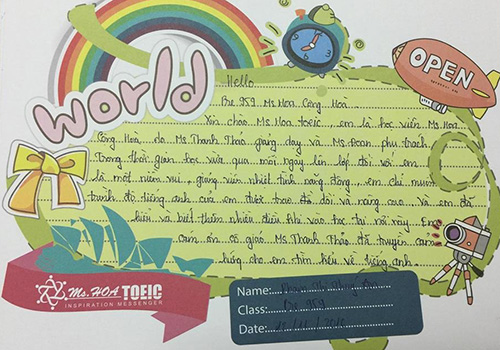 world
OPEN
Hello
Be 959 Ms Hoa Cộng Hoà
Xin chào Ms Hoa toeic em là học viên Ms Hoa
Cộng Hoà do Ms Thanh Thảo giảng dạy và Ms Đoan phụ trách
Trong thời gian học vừa qua mỗi ngày lên lớp đối với em
là một niềm vui, giảng viên nhiệt tình năng động em chỉ muốn
trình độ tiếng anh của em được trao dồi và nâng cao Và em đã
hiểu và biết thêm nhiều điều khi vào học tại nơi này Em
cảm ơn cô giáo Ms Thanh Thảo đã truyền cảm
hứng cho em tìm hiểu về tiếng anh
Ms. HOA TOEIC
INSPIRATION MESSENGER
Name:
Class: Be 959
Date: